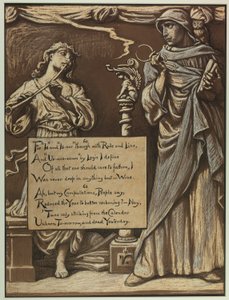 For Is and Is-not though with Rule and Line,
And Up-and-down by Logic I define
Of all that one should care to fathom, I
Was never deep in anything but Wine.
Ah, but my Computations, People say,
Reduced the Year to better reckoning? Nay,
'Twas only striking from the Calendar
Unborn To-morrow, and dead Yesterday.